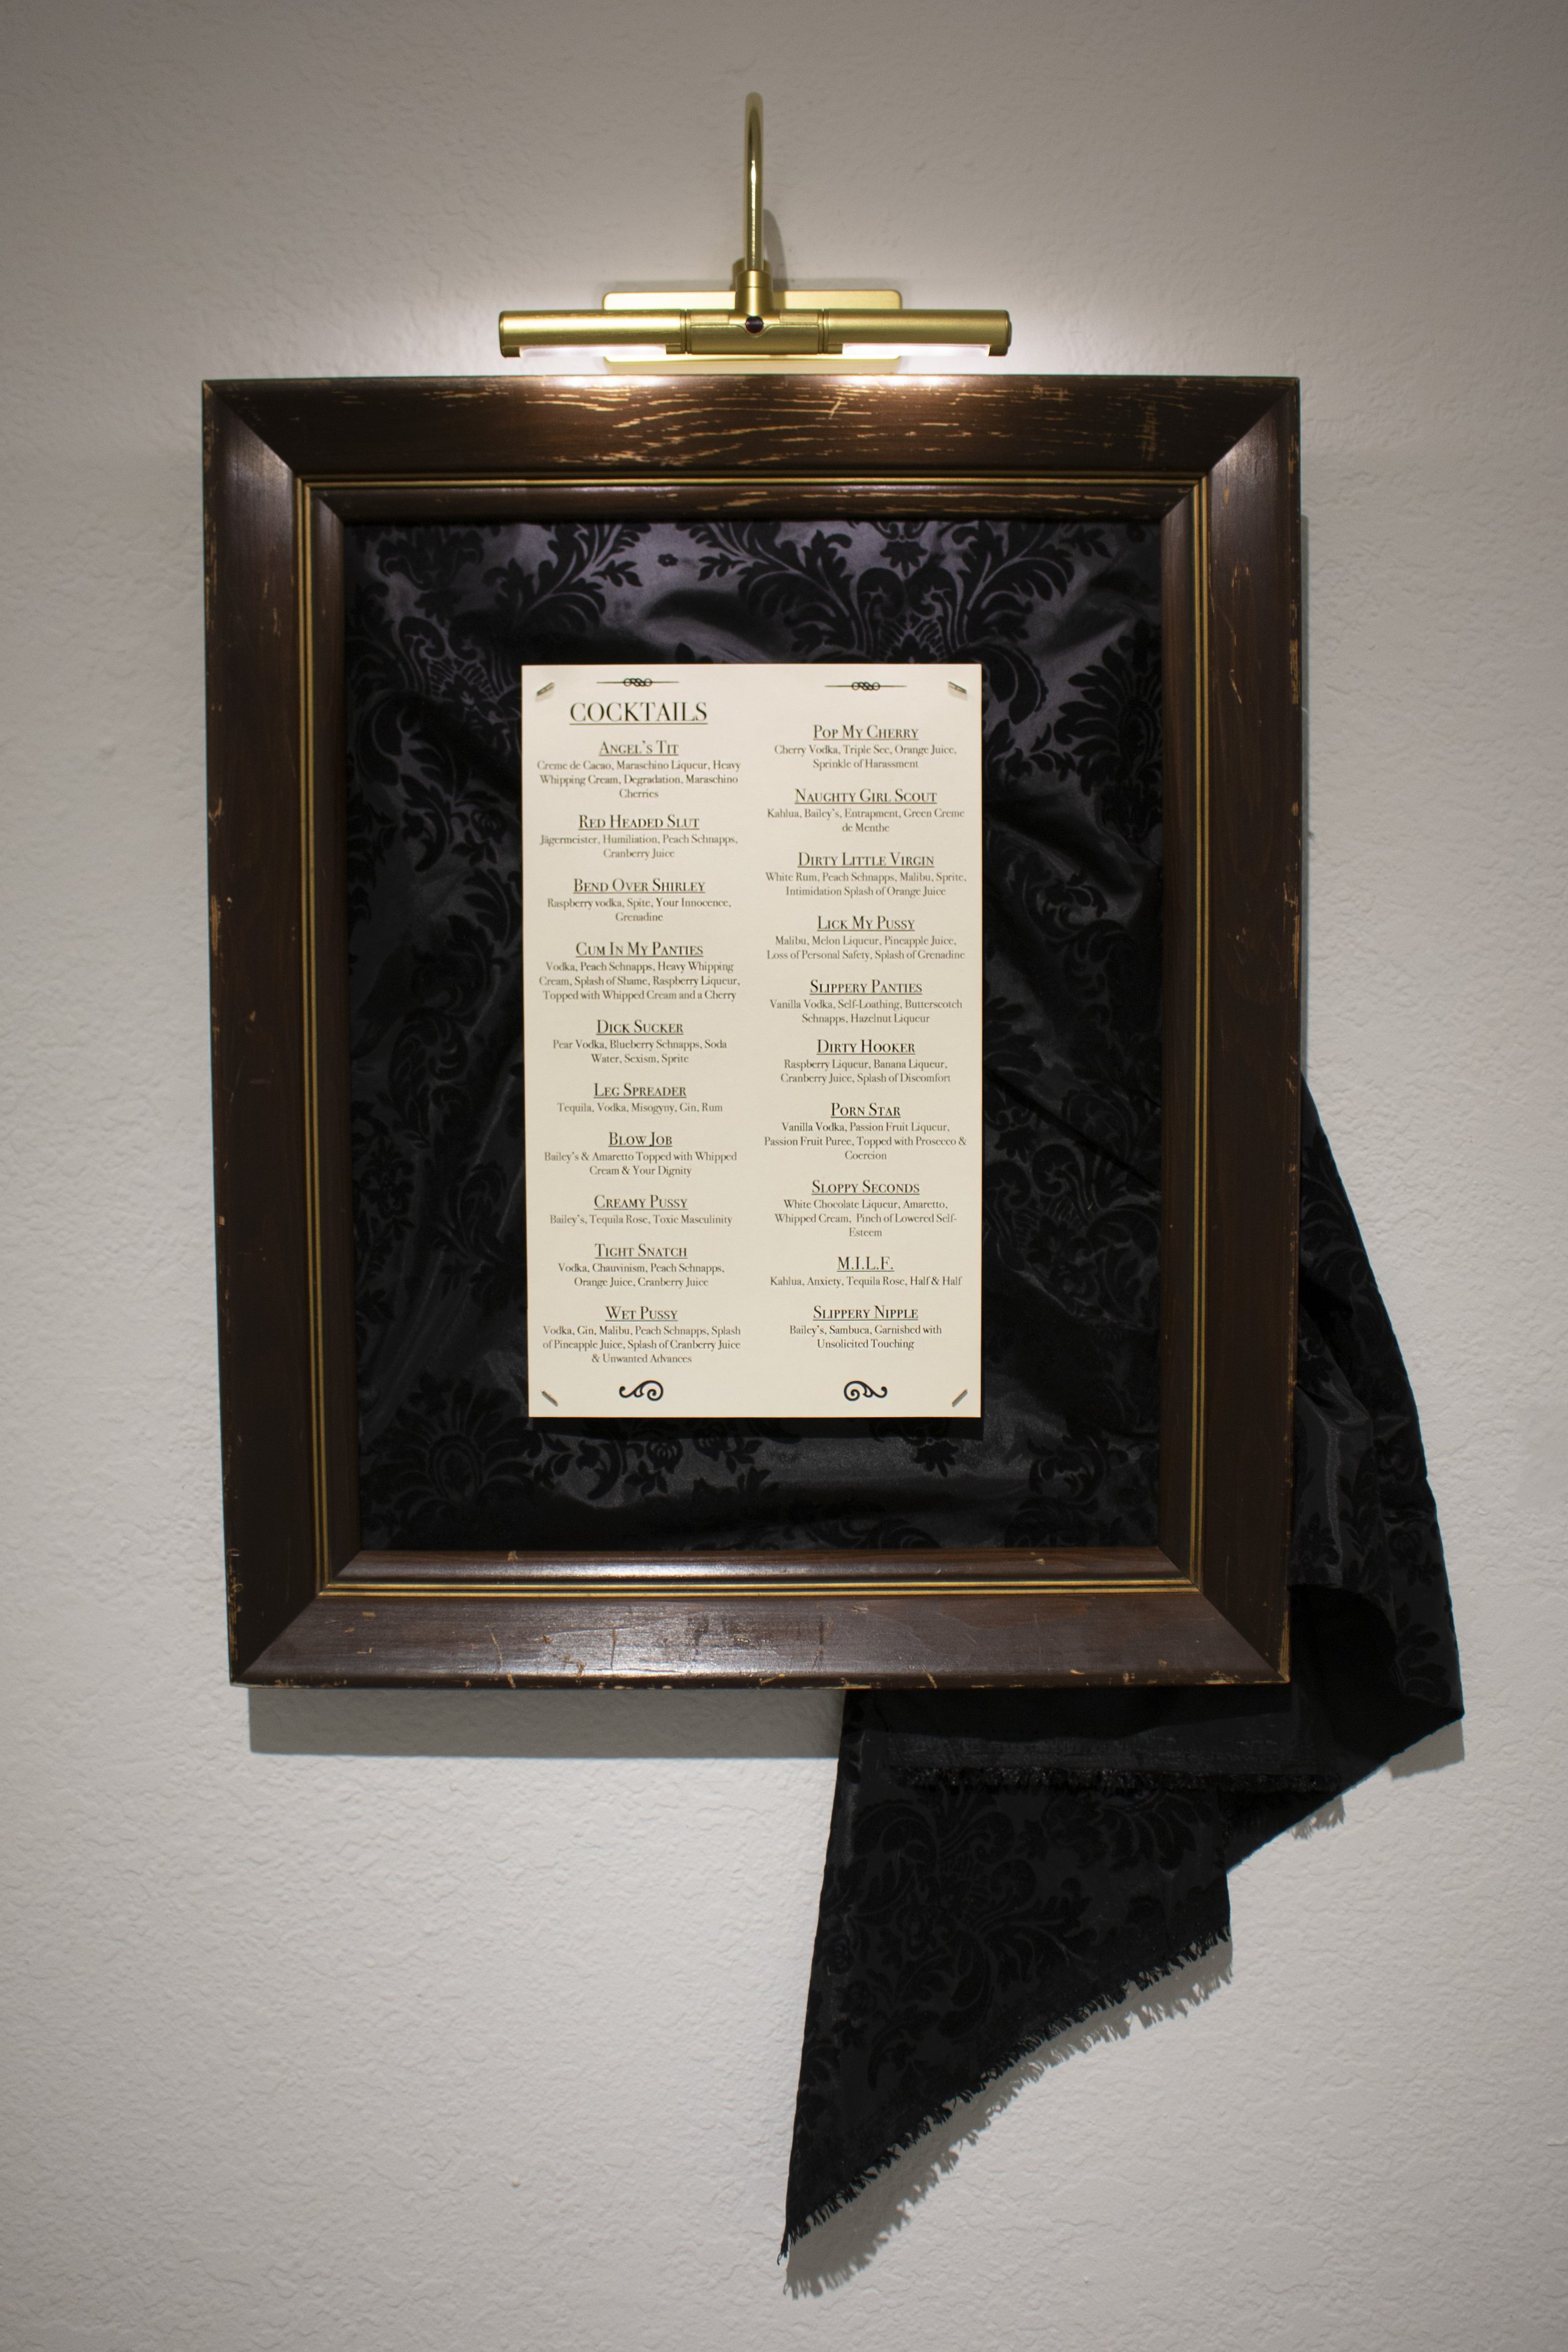 COCKTAILS
ANGEL'S TIT
Creme de Cacao, Maraschino Liqueur, Heavy
Whipping Cream, Degradation, Maraschino
Cherries
RED HEADED SLUT
Jägermeister, Humiliation, Peach Schnapps,
Cranberry Juice
BEND OVER SHIRLEY
Raspberry vodka, Spite, Your Innocence,
Grenadine
CUM IN MY PANTIES
Vodka, Peach Schnapps, Heavy Whipping
Cream, Splash of Shame, Raspberry Liqueur,
Topped with Whipped Cream and a Cherry
DICK SUCKER
Pear Vodka, Blueberry Schnapps, Soda
Water, Sexism, Sprite
LEG SPREADER
Tequila, Vodka, Misogyny, Gin, Rum
BLOW JOB
Bailey's & Amaretto Topped with Whipped
Cream & Your Dignity
CREAMY PUSSY
Bailey's, Tequila Rose, Toxic Masculinity
TIGHT SNATCH
Vodka, Chauvinism, Peach Schnapps,
Orange Juice, Cranberry Juice
WET PUSSY
Vodka, Gin, Malibu, Peach Schnapps, Splash
of Pineapple Juice, Splash of Cranberry Juice
& Unwanted Advances
POP MY CHERRY
Cherry Vodka, Triple Sec, Orange Juice,
Sprinkle of Harassment
NAUGHTY GIRL SCOUT
Kahlua, Bailey's, Entrapment, Green Creme
de Menthe
DIRTY LITTLE VIRGIN
White Rum, Peach Schnapps, Malibu, Sprite,
Intimidation Splash of Orange Juice
LICK MY PUSSY
Malibu, Melon Liqueur, Pineapple Juice,
Loss of Personal Safety, Splash of Grenadine
SLIPPERY PANTIES
Vanilla Vodka, Self-Loathing, Butterscotch
Schnapps, Hazelnut Liqueur
DIRTY HOOKER
Raspberry Liqueur, Banana Liqueur,
Cranberry Juice, Splash of Discomfort
PORN STAR
Vanilla Vodka, Passion Fruit Liqueur,
Passion Fruit Puree, Topped with Prosecco &
Coercion
SLOPPY SECONDS
White Chocolate Liqueur, Amaretto,
Whipped Cream, Pinch of Lowered Self-
Esteem
M.I.L.F.
Kahlua, Anxiety, Tequila Rose, Half & Half
SLIPPERY NIPPLE
Bailey's, Sambuca, Garnished with
Unsolicited Touching